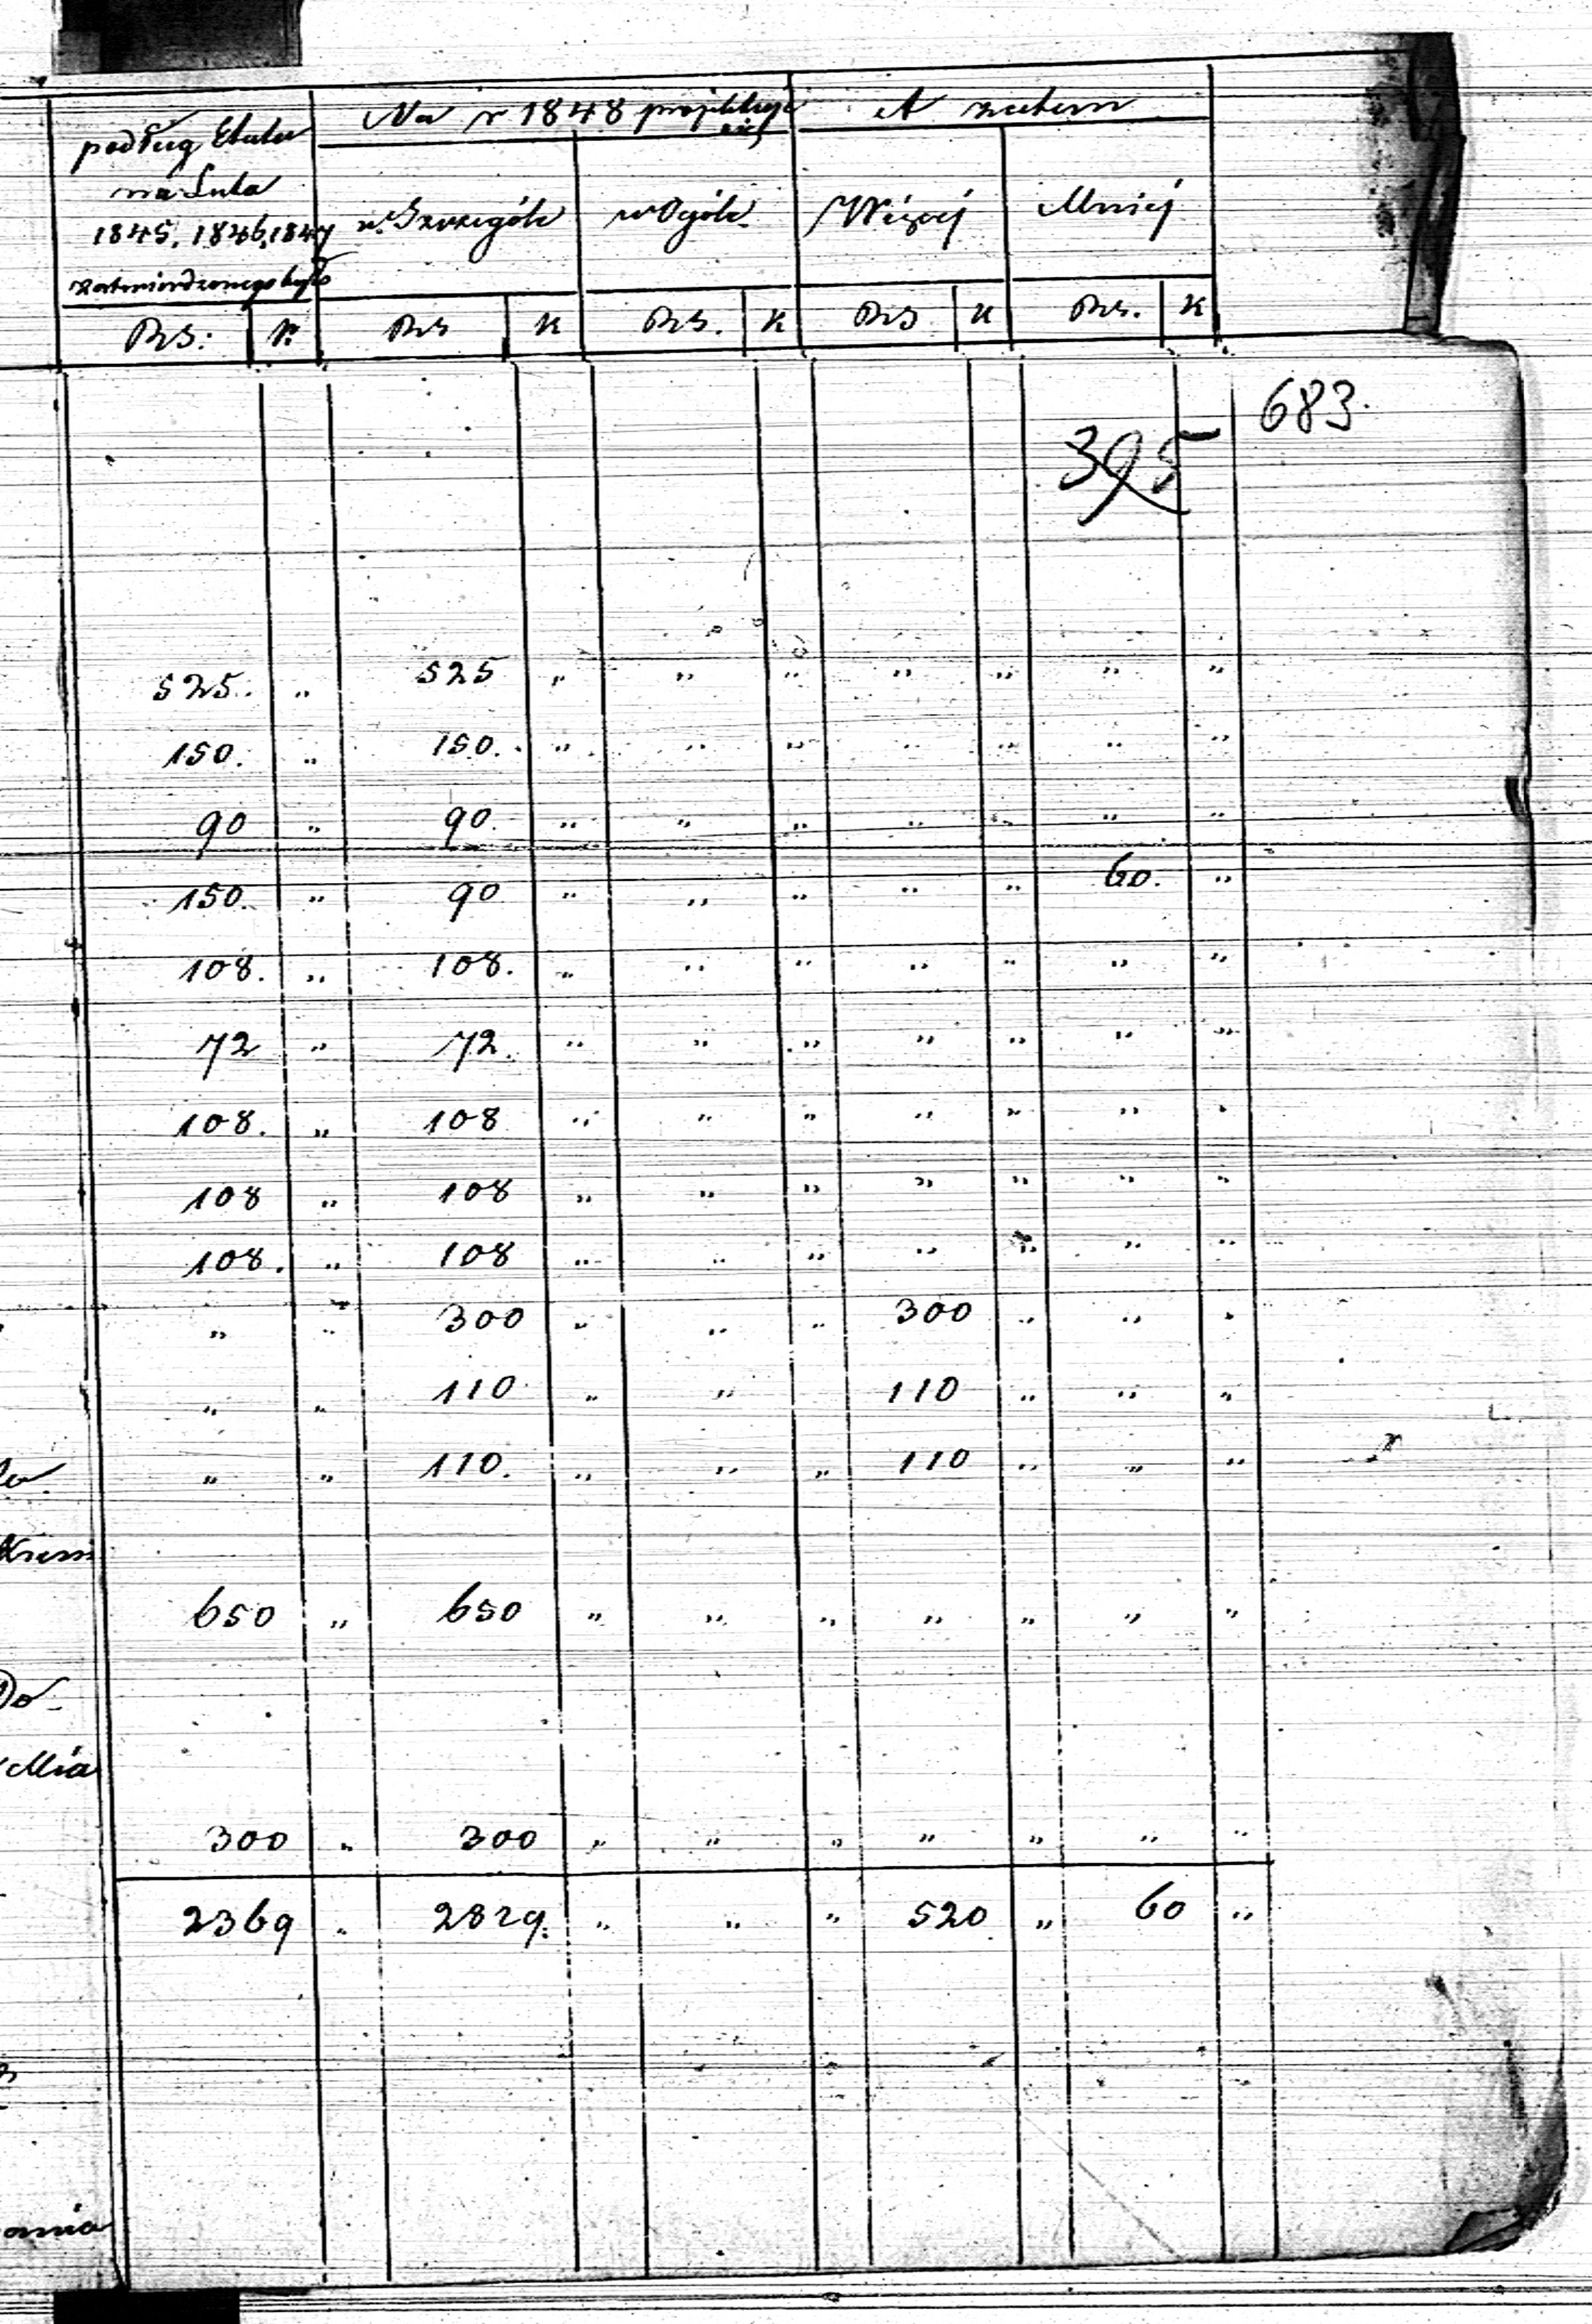 podług Etatu
na Lata
1845, 1846, 1847
zatwierdzonego było
Na r 1848 projektuje się
A zatem
w Szczególe
w Ogóle
Więcej
Mniej
RS: K. RS K RS. K RS K RS. K
683.
395
525. " 525 " " " " " " "
150. " 150. " " " " " " "
90 " 90 " " " " " " "
150. " 90 " " " " " 60. "
108. " 108. " " " " " " "
72 " 72. " " " " " " "
108. " 108 " " " " " " "
108 " 108 " " " " " " "
108. " 108 " " " " " " "
" " 300 " " " 300 " " "
" " 110 " " 110 " " "
" " 110. " " " 110 " " "
650 " 650 " " " " " " "
Do-
300 " 300 " " " " " " "
2369 " 2829. " " " 520 " 60 "